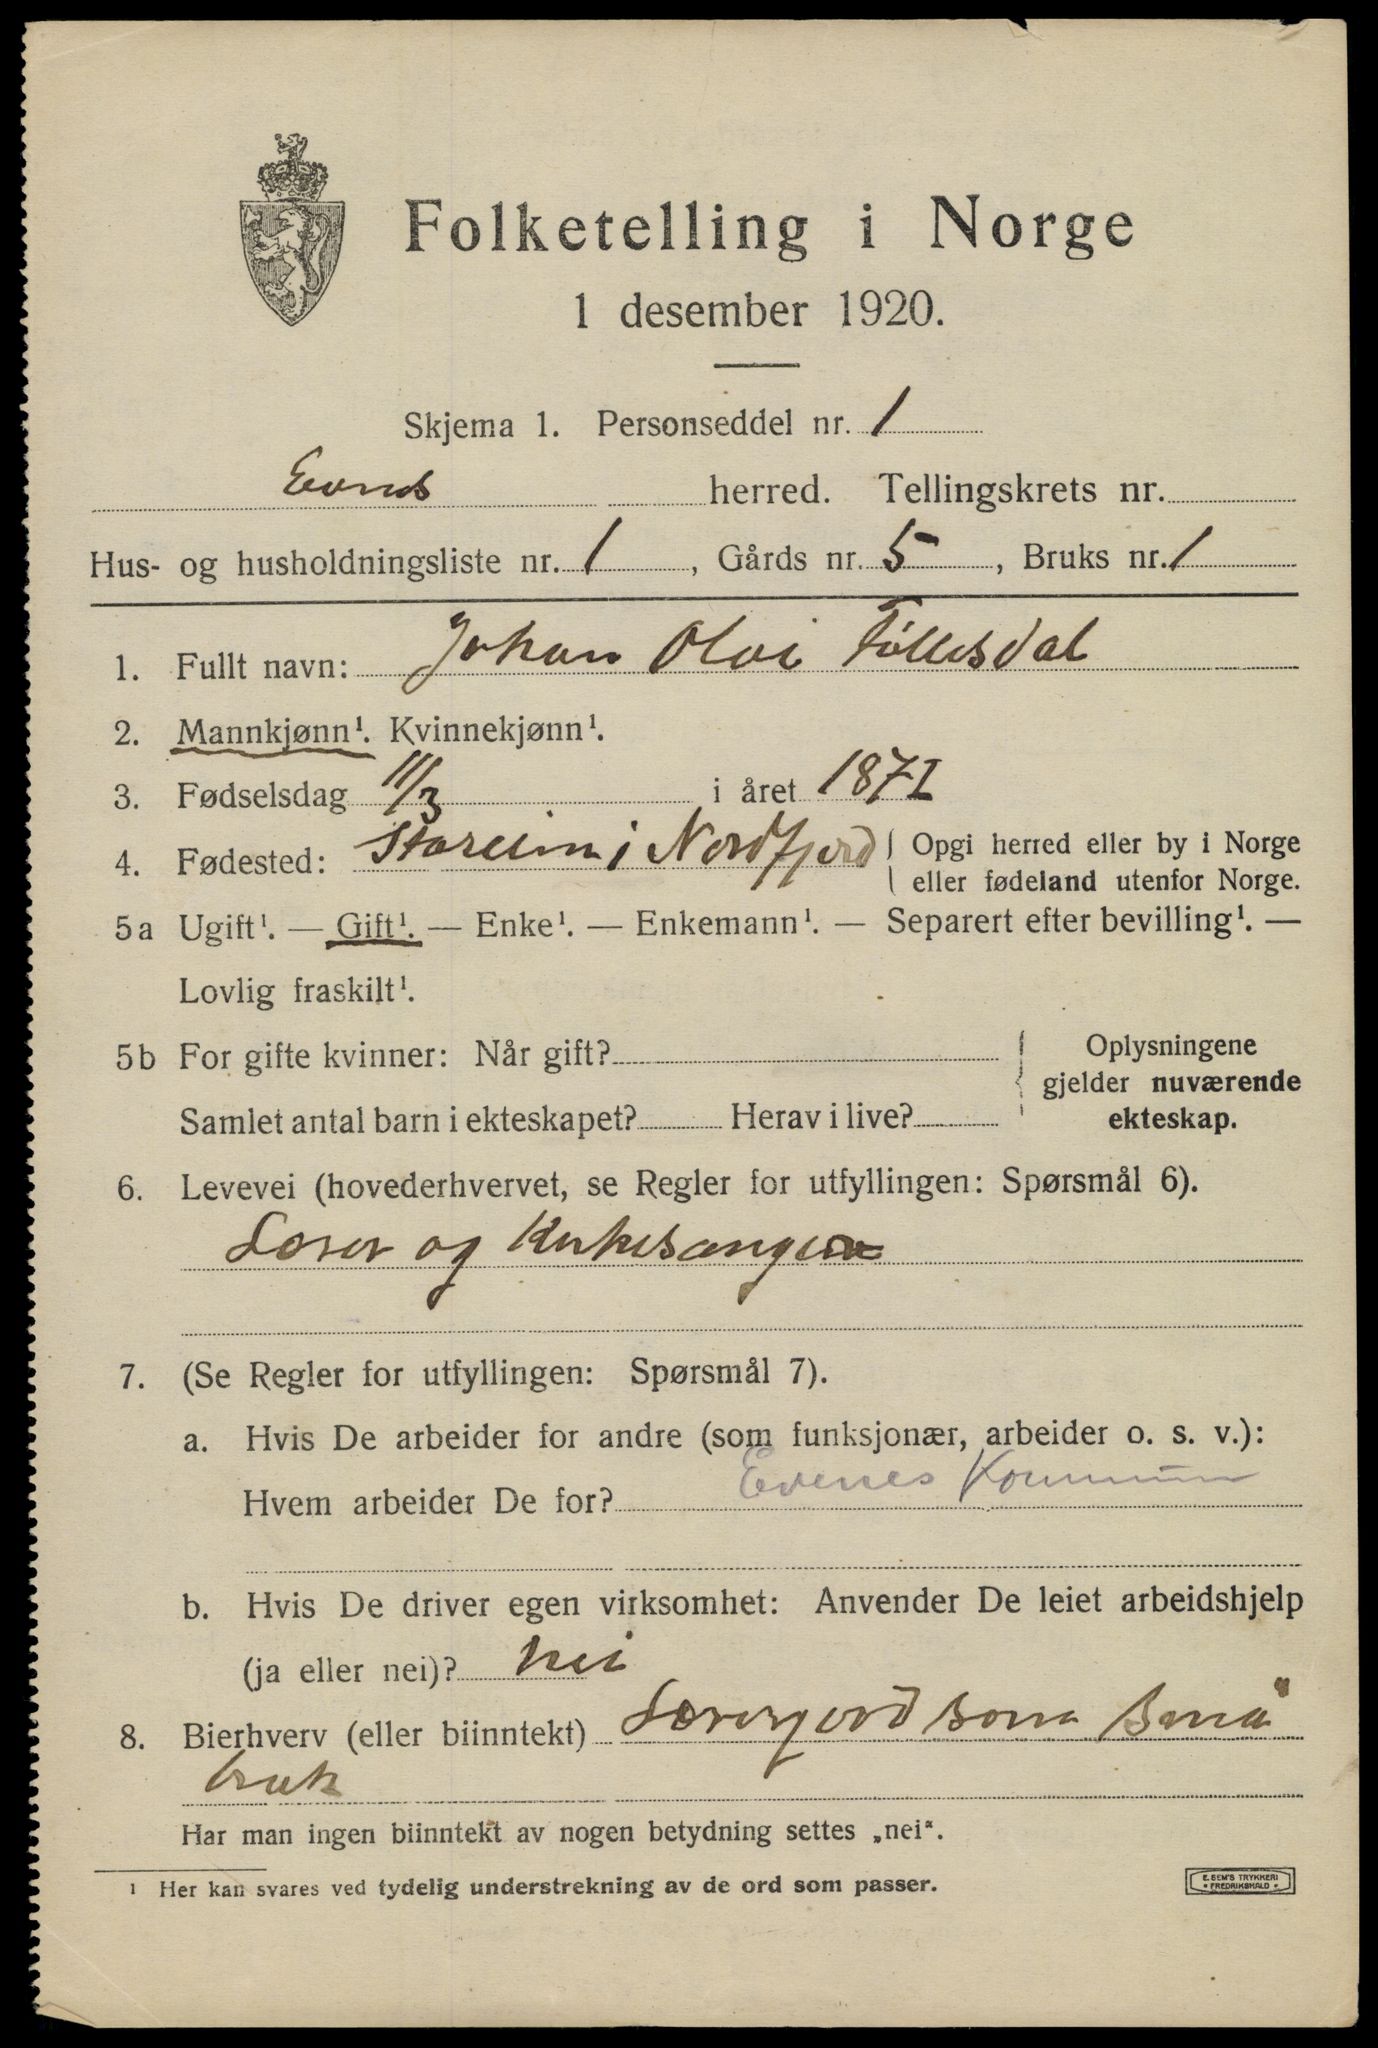 Folketelling i Norge
1 desember 1920.
Skjema 1. Personseddel nr. 1
Evenes herred. Tellingskrets nr.
Hus- og husholdningsliste nr. 1, Gårds nr. 5, Bruks nr. 1
1. Fullt navn: Johan Olai Føllesdal
2. Mannkjønn¹. Kvinnekjønn¹.
3. Fødselsdag 11/3 i året 1871
4. Fødested: Stareim i Nordfjord Opgi herred eller by i Norge
eller fødeland utenfor Norge.
5a Ugift¹. — Gift¹. — Enke¹. — Enkemann¹. — Separert efter bevilling¹. —
Lovlig fraskilt¹.
5b For gifte kvinner: Når gift? Oplysningene
gjelder nuværende
Samlet antal barn i ekteskapet? Herav i live? ekteskap.
6. Levevei (hovederhvervet, se Regler for utfyllingen: Spørsmål 6).
Lærer og Kirkesanger
7. (Se Regler for utfyllingen: Spørsmål 7).
a. Hvis De arbeider for andre (som funksjonær, arbeider o. s. v.):
Hvem arbeider De for? Evenes Kommun
b. Hvis De driver egen virksomhet: Anvender De leiet arbeidshjelp
(ja eller nei)? Nei
8. Bierhverv (eller biinntekt) Lærerjord som Små"
bruk
Har man ingen biinntekt av nogen betydning settes „nei".
¹ Her kan svares ved tydelig understrekning av de ord som passer.
E. SEM'S TRYKKERI
• FREDRIKSHALD •